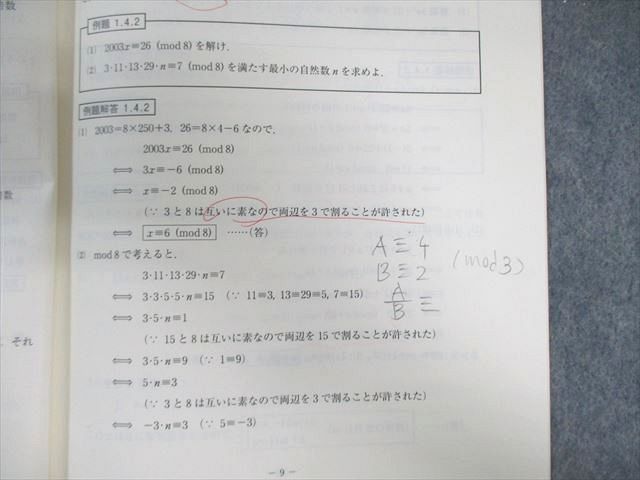 例題 1.4.2
(1) 2003x≡26 (mod 8) を解け.
(2) 3·11·13·29·n≡7 (mod 8) を満たす最小の自然数 n を求めよ.
例題解答 1.4.2
(1) 2003=8×250+3, 26=8×4−6 なので,
2003x≡26 (mod 8)
⟺ 3x≡−6 (mod 8)
⟺ x≡−2 (mod 8)
(∵ 3 と 8 は互いに素なので両辺を 3 で割ることが許された)
⟺ x≡6 (mod 8) ……(答)
(2) mod 8 で考えると,
3·11·13·29·n≡7
⟺ 3·3·5·5·n≡15 (∵ 11≡3, 13≡29≡5, 7≡15)
⟺ 3·5·n≡1
(∵ 15 と 8 は互いに素なので両辺を 15 で割ることが許された)
⟺ 3·5·n≡9 (∵ 1≡9)
⟺ 5·n≡3
(∵ 3 と 8 は互いに素なので両辺を 3 で割ることが許された)
⟺ −3·n≡3 (∵ 5≡−3)
A≡4
B≡2 (mod3)
A/B ≡
それ
− 9 −